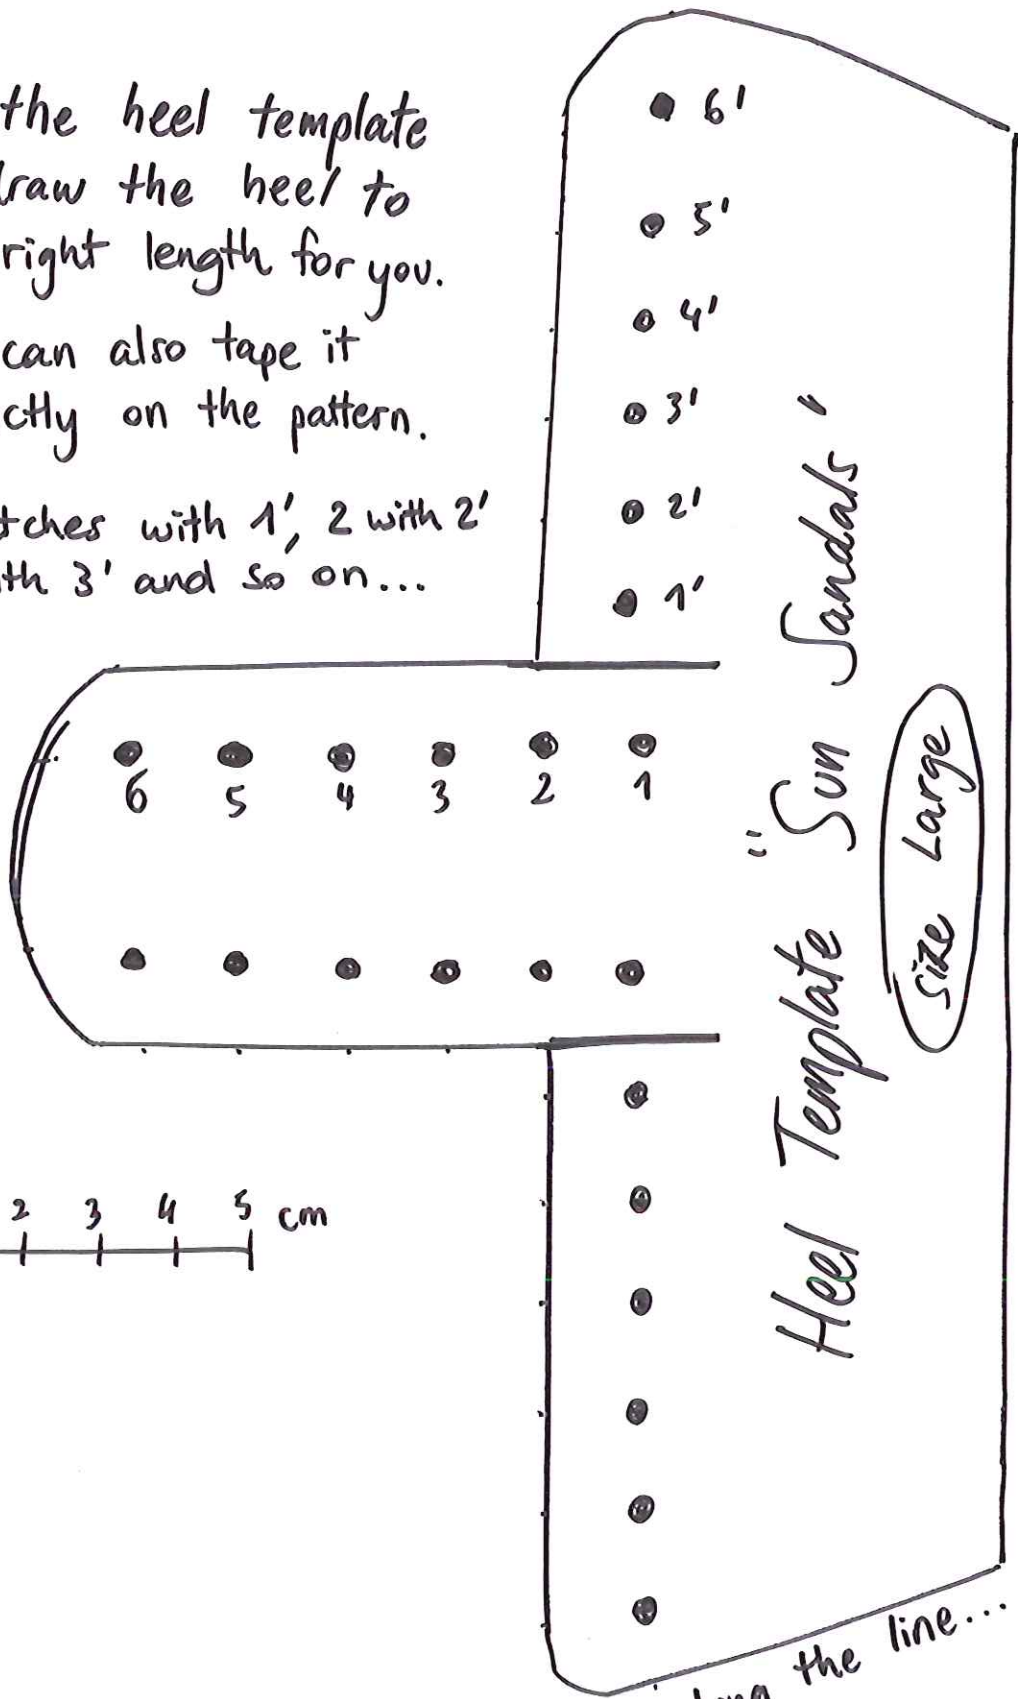 the heel template
draw the heel to
right length for you.
can also tape it
ctly on the pattern.
tches with 1', 2 with 2'
th 3' and so on...
6'
5'
4'
3'
2'
1'
6 5 4 3 2 1
Heel Template "Sun Sandals"
Size Large
2 3 4 5 cm
the line...